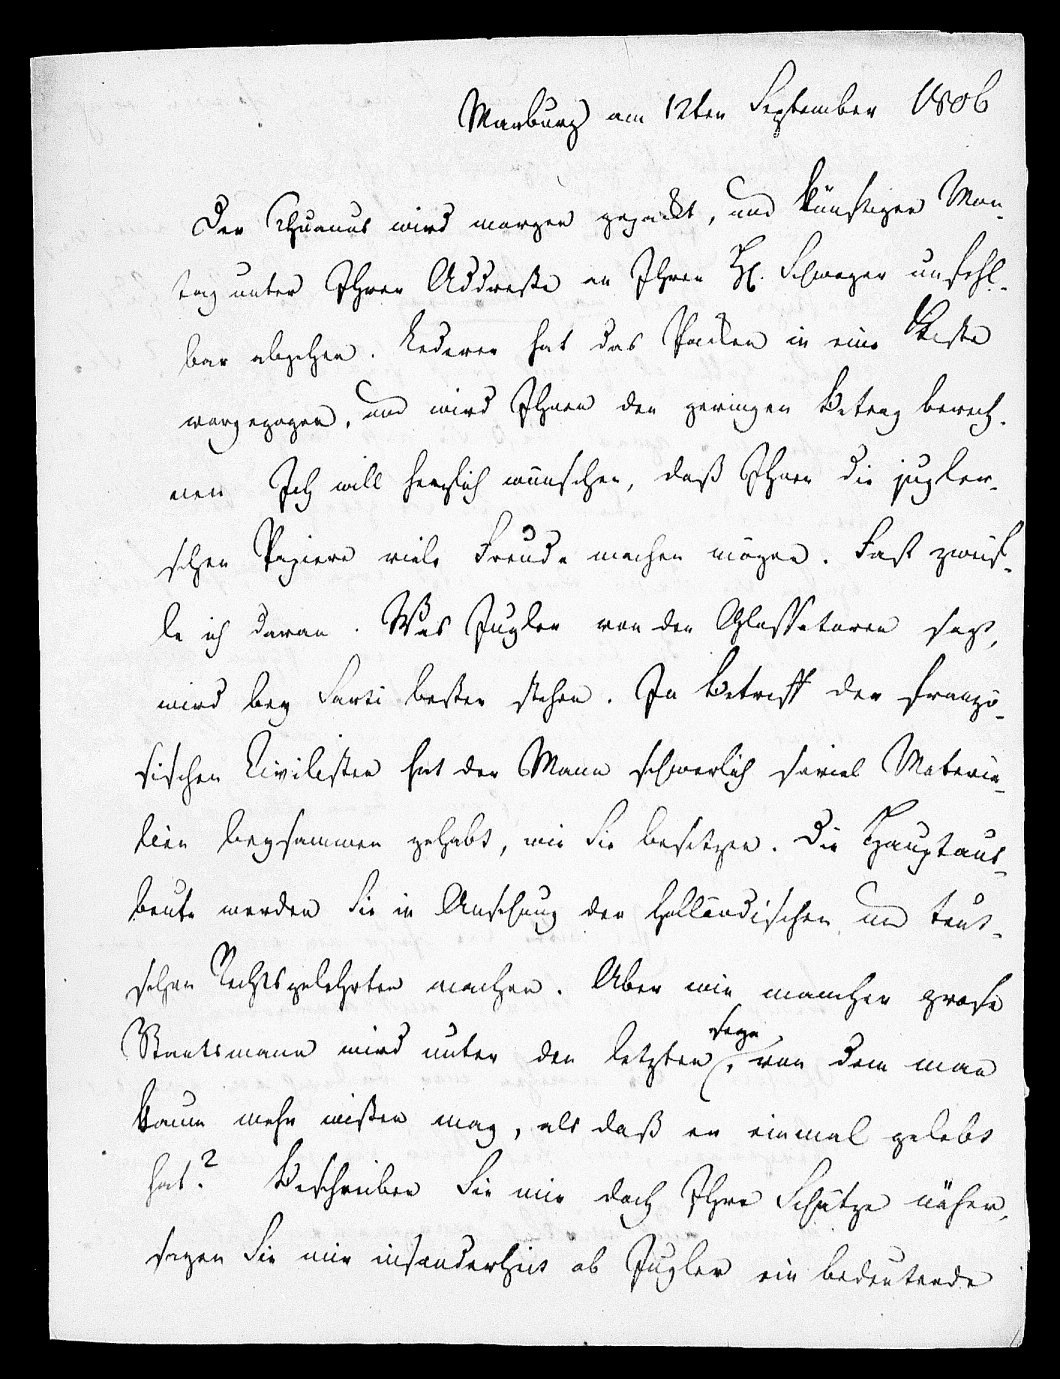 Marburg am 12ten September 1806
Der Thuanus wird morgen gepackt, und künftigen Mon-
tag unter Ihrer Addreße an Ihren H. Schwager unfehl-
bar abgehen. Lederer hat das Packen in eine Kiste
vorgezogen, und wird Ihnen den geringen Betrag berech-
nen Ich will herzlich wünschen, daß Ihnen die jugler-
schen Papiere viele Freude machen mögen. Fast zweif-
le ich daran. Was Jugler von den Glossatoren sagt,
wird bey Sarti besser stehen. In Betreff der franzö-
sischen Civilisten hat der Mann schwerlich soviel Materia-
lien beysammen gehabt, wie Sie besitzen. Die Hauptaus-
beute werden Sie in Ansehung der holländischen und teut-
schen Rechtsgelehrten machen. Aber wie mancher grose
Staatsmann wird unter den letzten seyn, von dem man
kaum mehr wißen mag, als daß er einmal gelebt
hat? Beschreiben Sie mir doch Ihre Schätze näher,
sagen Sie mir insonderheit ob Jugler ein bedeutende